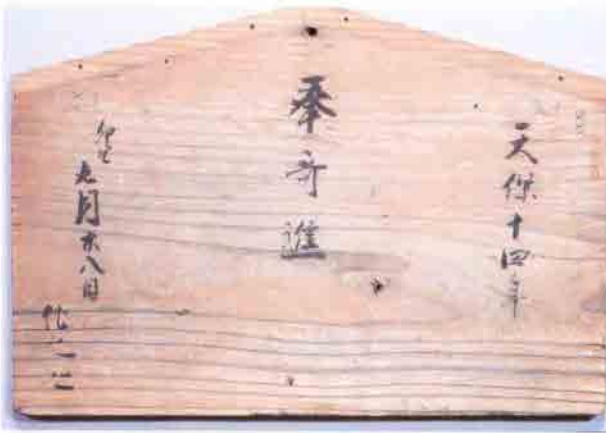 天保十四年
奉寄進
卯九月廿八日